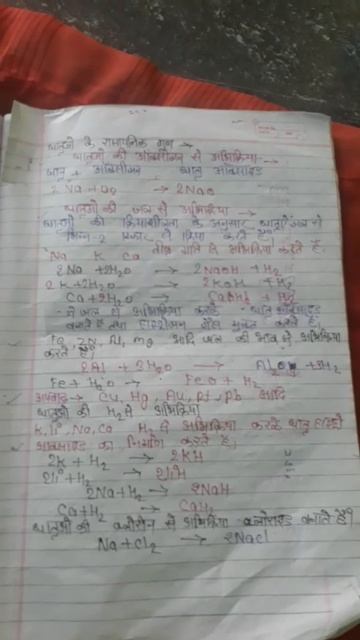 धातुओ के रासायनिक गुण →
धातुओ की ऑक्सीजन से अभिक्रिया →
धातु + ऑक्सीजन धातु ऑक्साइड
→ 2Nao
धातुओ की जल से अभिक्रिया →
धातुओ की क्रियाशीलता के अनुसार धातुऐ जल से
भिन्न-2 प्रकार से क्रिया करती है।
Na K Ca तीव्र गति से अभिक्रिया करते है.
2Na + 2H2O → 2NaOH + H2
2K + 2H2O → 2KOH + H2
Ca + 2H2O →
ये जल से अभिक्रिया करके धातु
बनाते है तथा हाइड्रोजन गैस मुक्त करते है।
Fe, Zn, Al, Mg आदि जल की भाप से अभिक्रिया
करते है।
2Al + 3H2O → + 3H2
Fe + H2O → FeO + H2
अपवाद → Cu, Hg, Au, Pt, Pb आदि
धातुओ की H2 से अभिक्रिया
K, Li, Na, Ca H2 से अभिक्रिया करके धातु
का निर्माण करते है,
2K + H2 → 2KH
2li + H2 → 2liH
2Na + H2 → 2NaH
Ca + H2 → CaH2
धातुओ की क्लोरीन से अभिक्रिया क्लोराइड बनाते है?
Na + Cl2 → 2Nacl